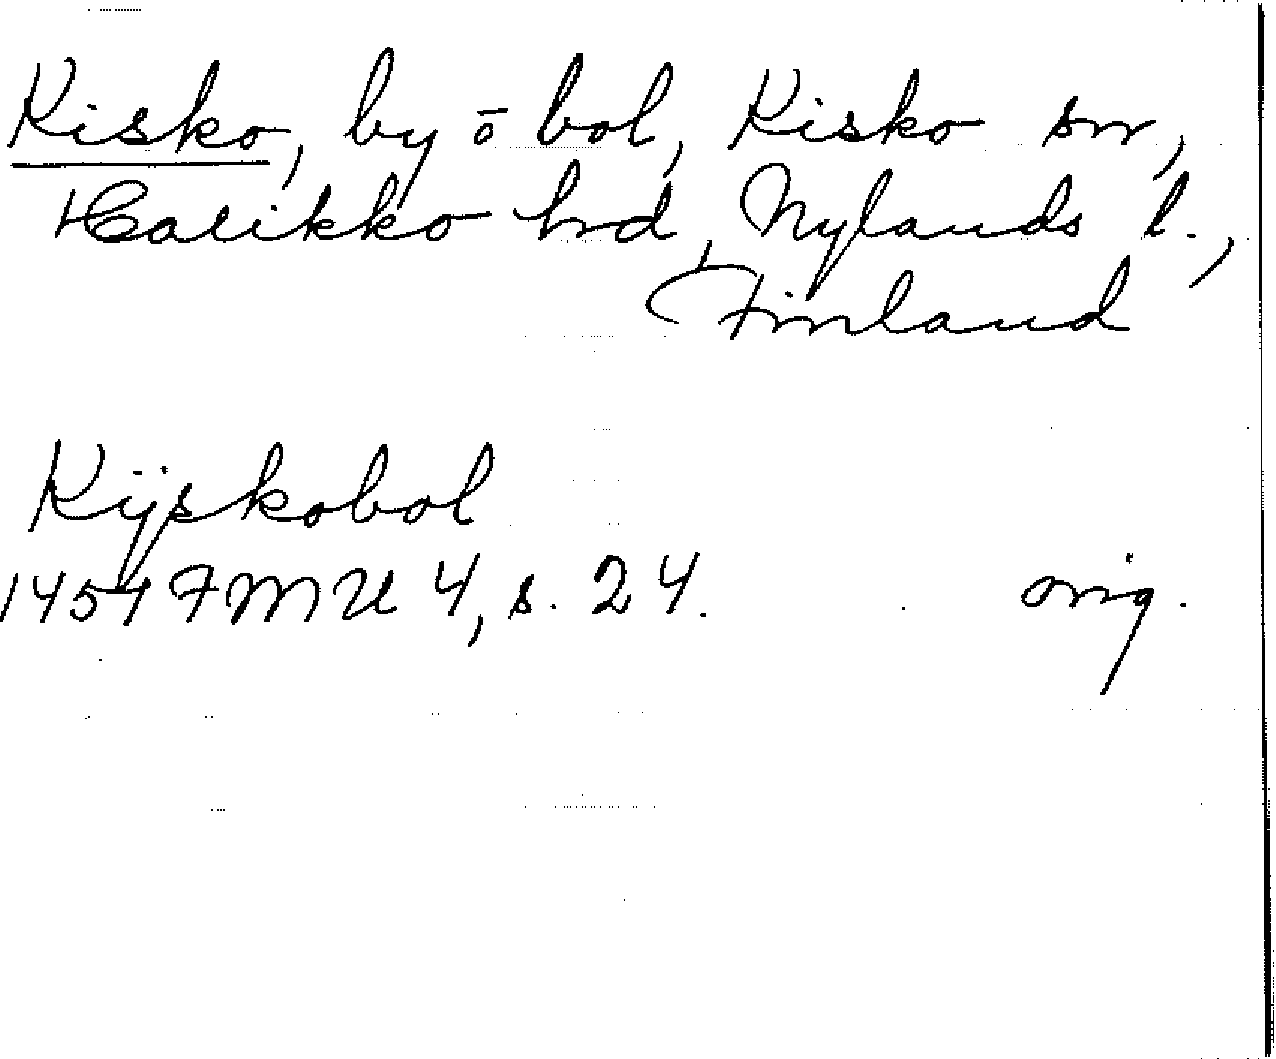 Kisko, by ō bol, Kisko sn,
Halikko hrd, Nylands l.,
Finland
Kijskobol
1451 FMU 4, s. 24.
orig.